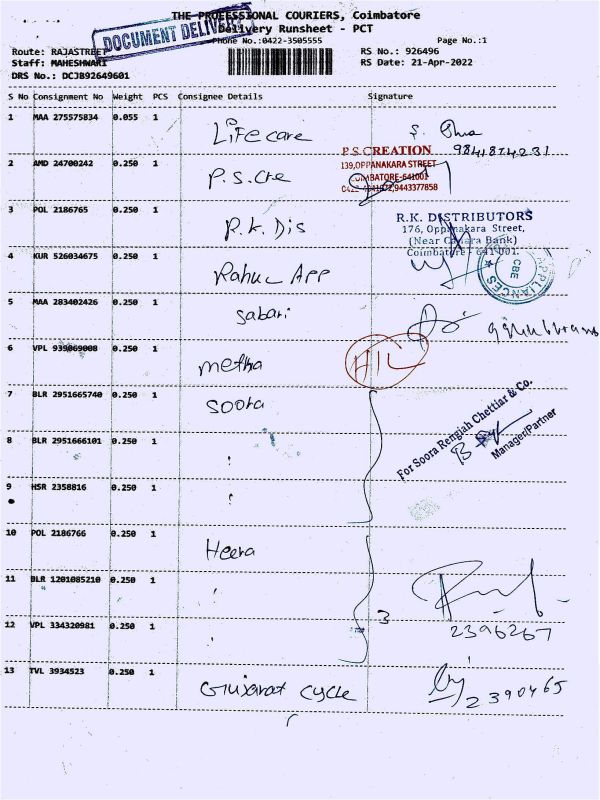 THE PROFESSIONAL COURIERS, Coimbatore
DOCUMENT DELIVERY
Delivery Runsheet - PCT
Phone No.:0422-3505555
Page No.:1
Route: RAJASTREET
RS No.: 926496
Staff: MAHESHWARI
RS Date: 21-Apr-2022
DRS No.: DCJB92649601
S No Consignment No Weight PCS Consignee Details Signature
1 MAA 275575834 0.055 1 Lifecare
9841874231
2 AMD 24700242 0.250 1 P.S.Cre
P.S.CREATION
139,OPPANAKARA STREET
COIMBATORE-641001
9443377858
3 POL 2186765 0.250 1 R.K. Dis
R.K. DISTRIBUTORS
176, Oppanakara Street,
(Near Canara Bank)
Coimbatore - 641 001.
4 KUR 526034675 0.250 1 Rahul App
APPLIANCES
CBE
5 MAA 283402426 0.250 1 Sabari
6 VPL 939869008 0.250 1 metha
H/C
7 BLR 2951665740 0.250 1 Soora
For Soora Rengiah Chettiar & Co.
Manager/Partner
8 BLR 2951666101 0.250 1
9 HSR 2358816 0.250 1
10 POL 2186766 0.250 1 Heera
11 BLR 1201085210 0.250 1
12 VPL 334320981 0.250 1
3
2396267
13 TVL 3934523 0.250 1 Gujarat cycle
2390465